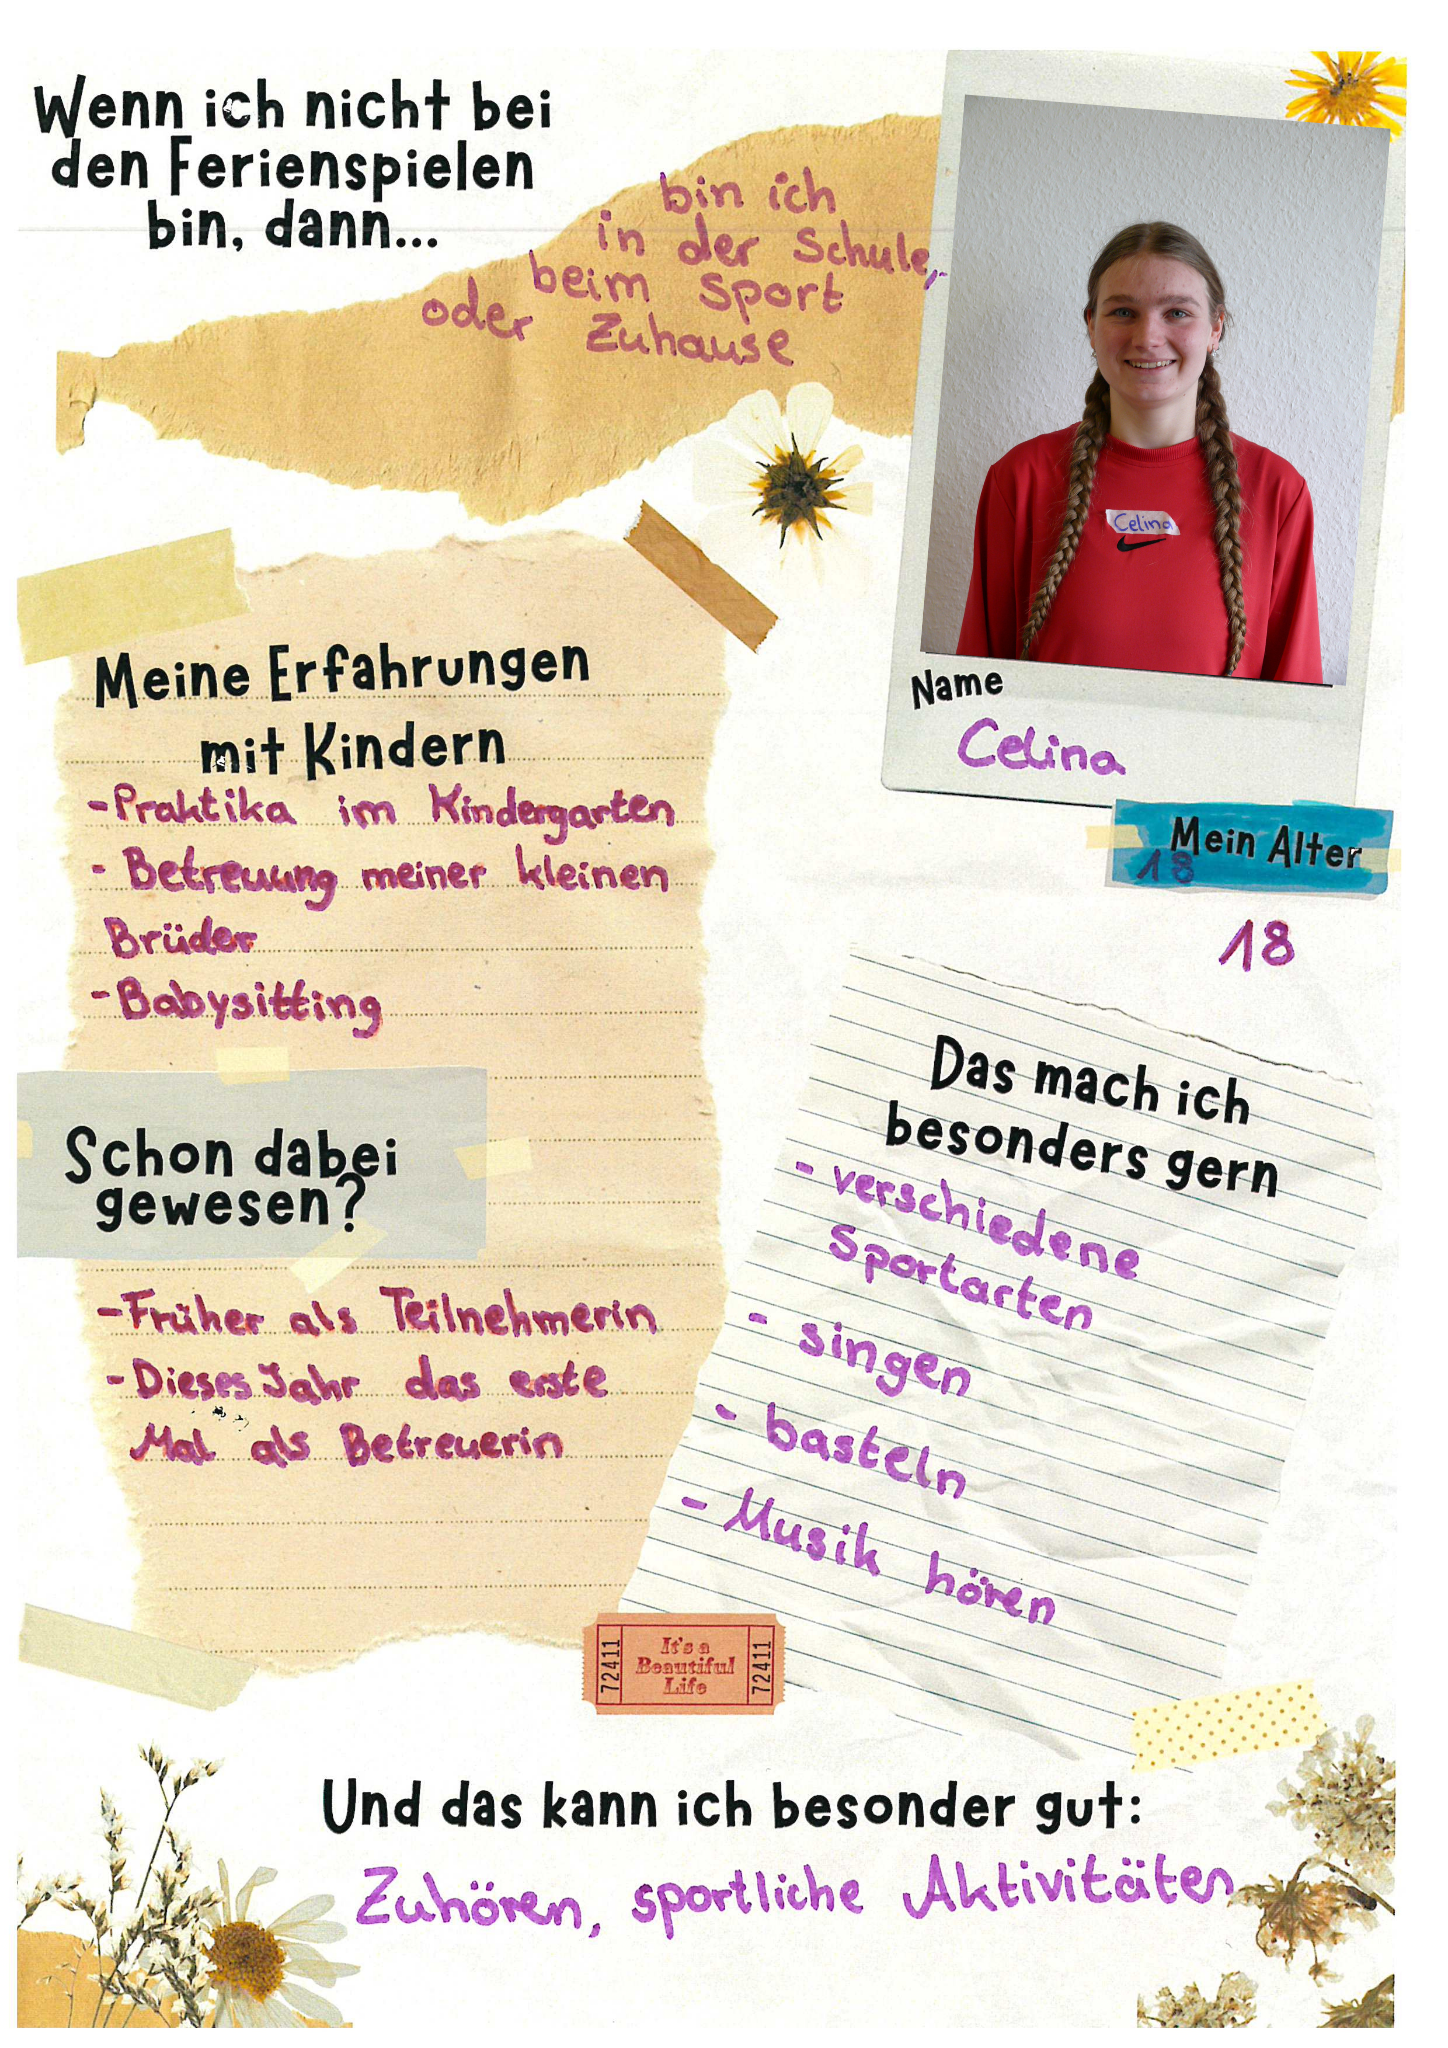 Wenn ich nicht bei
den Ferienspielen
bin, dann...
bin ich
in der Schule,
beim Sport
oder Zuhause
Celina
Name
Celina
Mein Alter
18
18
Meine Erfahrungen
mit Kindern
-Praktika im Kindergarten
- Betreuung meiner kleinen
Brüder
-Babysitting
Schon dabei
gewesen?
-Früher als Teilnehmerin
-Dieses Jahr das erste
Mal als Betreuerin
Das mach ich
besonders gern
- verschiedene
Sportarten
- singen
- basteln
- Musik hören
72411
It's a
Beautiful
Life
72411
Und das kann ich besonder gut:
Zuhören, sportliche Aktivitäten